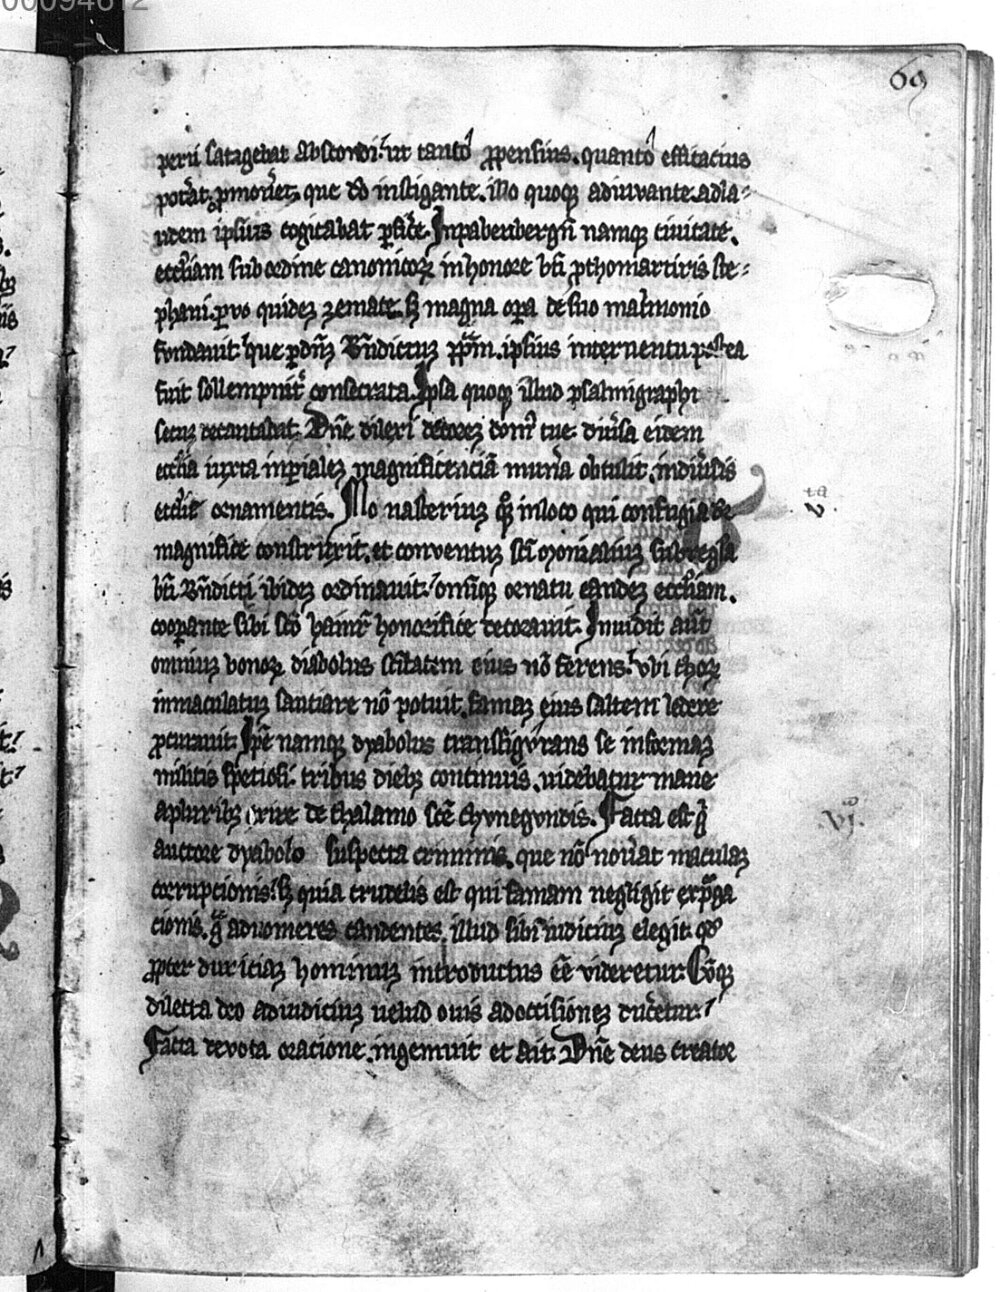 00094612
69
perii satagebat abscondi. ut tanto ꝓpensius. quanto efficacius
potˀat ꝓmoueret, que deo instigante. illo quoque adiuuante. ad la⸗
udem ipsius cogitabat ꝑficˀe. In pabenbergñ namque ciuitate.
eccl̄iam sub ordine canonicoꝝ in honore bt̄i ꝓthomartiris ste⸗
phani. ꝑuo quidez zemate. sꝫ magna oꝑa de suo mat̓monio
fundauit que ꝑ dn̄ꝫ Bn̄dictuꝫ pp̄m. ipsius interuentu postea
fuit sollempnit̓ consecrata. Ipsa quoque illud psalmigraphi
secuꝫ decantabat. Dn̄e dilexi decorez domꝰ tue. diu̓sa eidem
eccl̄ia iuxta inꝑialeꝫ magnificenciā mun̓a obtulit. in diu̓sis
eccl̄ie ornamentis. Mo nasteriuꝫ qꝫ in loco qui confugia de
magnifice construxit. et conuentuꝫ sc̄imonialiuꝫ sub regla
bt̄i Bn̄dicti ibideꝫ ordinauit. omniqꝫ ornatu eandeꝫ eccl̄iam.
cooꝑante sibi sc̄o hainr̄ honorifice decorauit. Inuidit aut̄
omniuꝫ bonoꝝ diabolus sc̄itatem eius nō ferens. ubi thoꝝ
inmaculatuꝫ sautiare nō potuit. famaꝫ eius saltem ledere
ꝓcurauit. Ip̄e namqꝫ dyabolus transfigurans se in formaꝫ
militis speciosi. tribus diebꝫ continuis. uidebatur mane
a pluribꝫ exire de thalamo sc̄e chunegundis. Facta est g̊
auctore dyabolo suspecta criminis. que nō nou̓at maculaꝫ
corrupcionis. sꝫ quia crudelis est qui famam negligit exp̄ga
cionis. g̊ ad uomeres candentes. illud sibi iudiciuꝫ elegit. qd̄
ꝓpter duriciaꝫ hominuꝫ introductus ēē uideretur. Cūqꝫ
dilecta deo ad iudiciuꝫ uelud ouis ad occisioneꝫ duc̓etur.
Facta deuota oracione. ingemuit et ait. Dn̄e deus creator
vj.